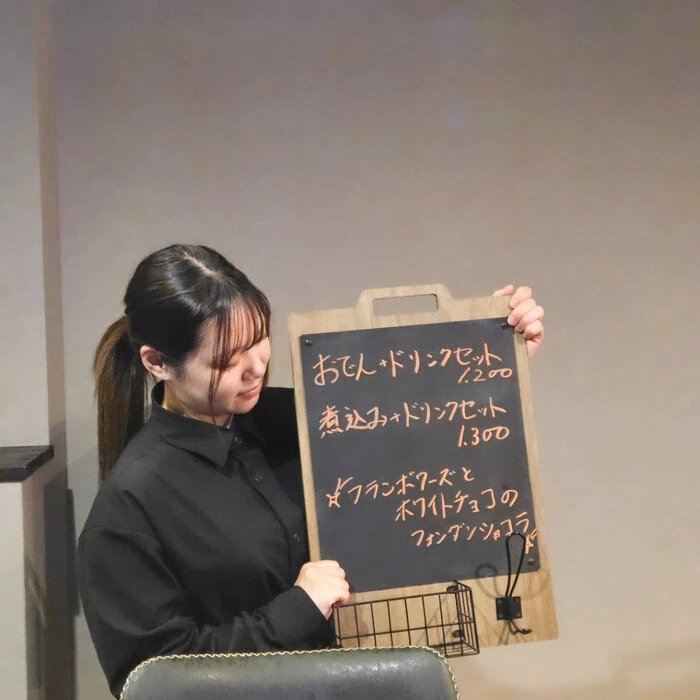 おでん+ドリンクセット
1.200
煮込み+ドリンクセット
1.300
☆フランボワーズと
ホワイトチョコの
フォンダンショコラ☆